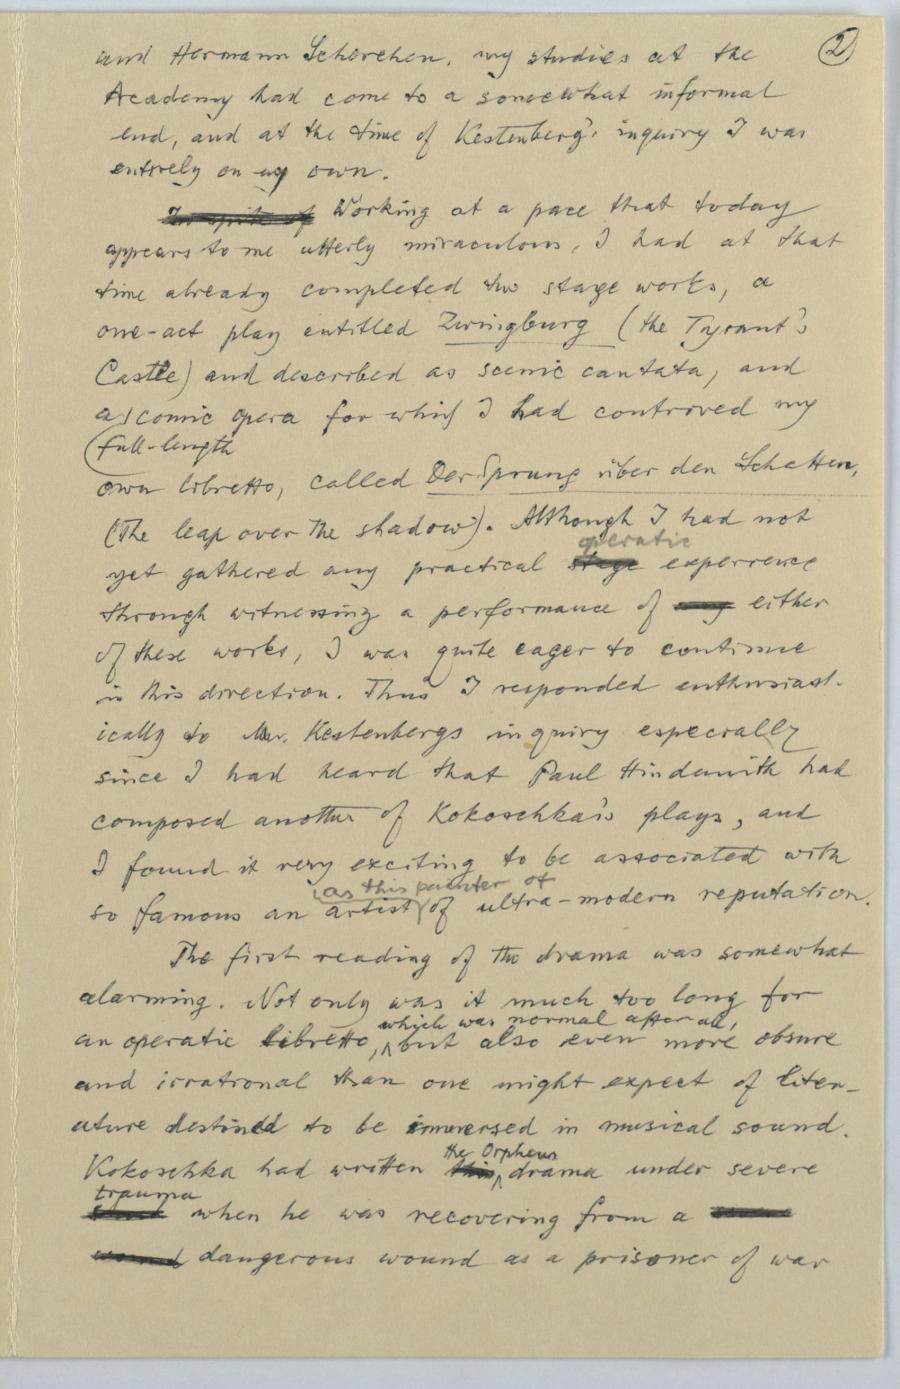 2
and Hermann Scherchen, my studies at the
Academy had come to a somewhat informal
end, and at the time of Kestenberg's inquiry I was
entirely on my own.
In spite of Working at a pace that today
appears to me utterly miraculous, I had at that
time already completed two stage works, a
one-act play entitled Zwingburg (the Tyrant's
Castle) and described as scenic cantata, and
a comic opera for which I had contrived my
full-length
own libretto, called Der Sprung über den Schatten,
(The leap over the shadow). Although I had not
operatic
yet gathered any practical stage experience
through witnessing a performance of any either
of these works, I was quite eager to continue
in this direction. Thus I responded enthusiast-
ically to Mr. Kestenbergs inquiry especially
since I had heard that Paul Hindemith had
composed another of Kokoschka's plays, and
I found it very exciting to be associated with
as this painter of
so famous an artist of ultra-modern reputation.
The first reading of the drama was somewhat
alarming. Not only was it much too long for
which was normal after all,
an operatic libretto, but also even more obsure
and irrational than one might expect of liter-
ature destined to be immersed in musical sound.
the Orpheus
Kokoschka had written this drama under severe
trauma
when he was recovering from a
wound dangerous wound as a prisoner of war